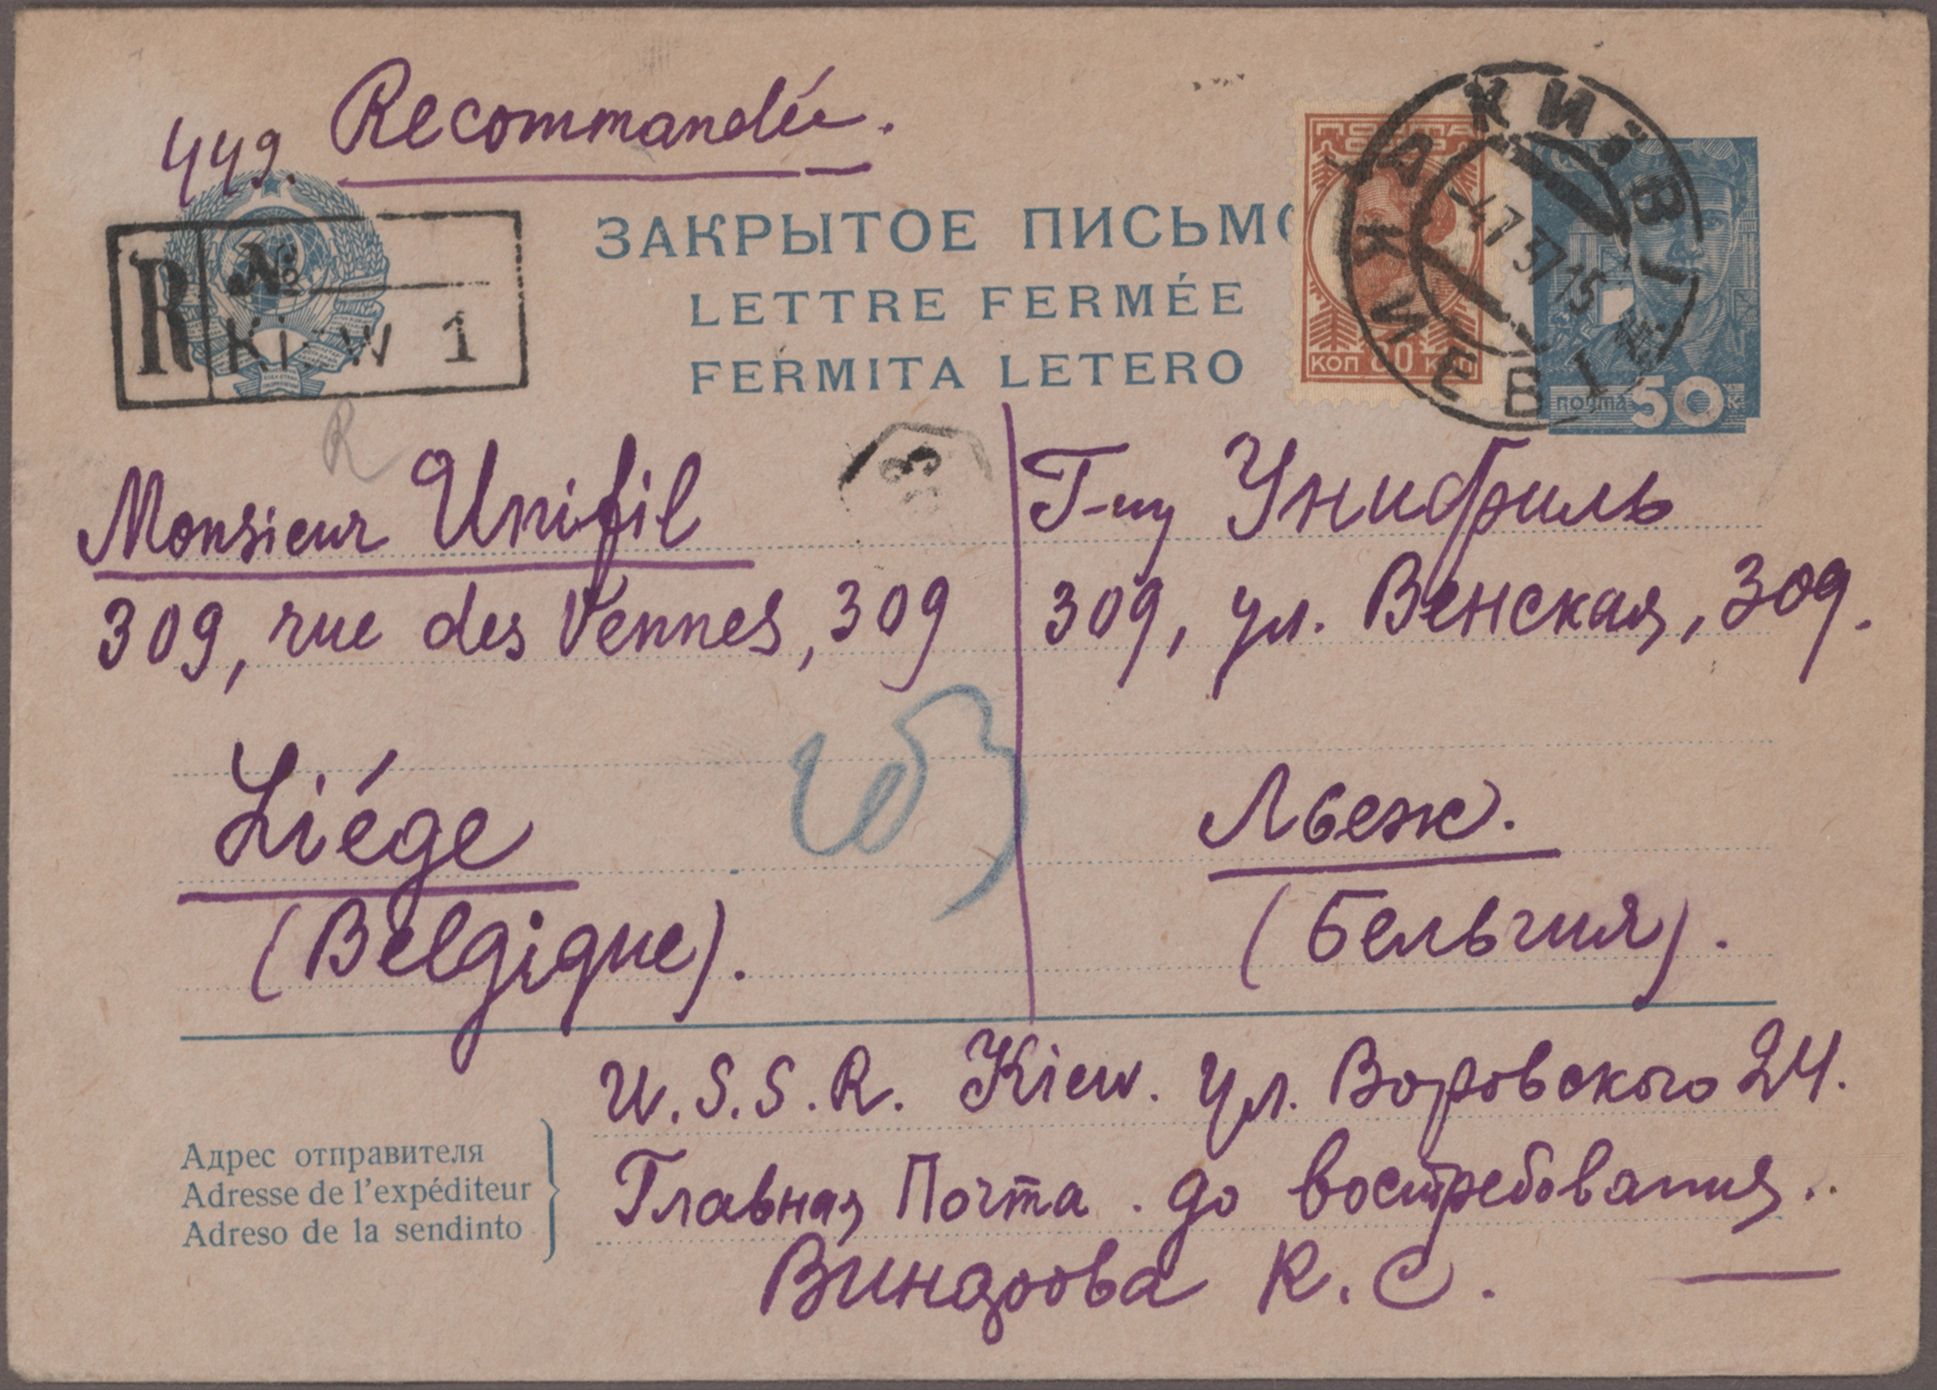 449. Recommandée.
R № Kiew 1
ЗАКРЫТОЕ ПИСЬМО
LETTRE FERMÉE
FERMITA LETERO
ПОЧТА
КОП 80 КОП
КИЇВ 1
-4 7 37 15
КИЕВ 1
ПОЧТА 50 К
R
3
Monsieur Unifil
309, rue des Vennes, 309
Liége
(Belgique).
Г-ну Унифиль
309, ул. Венская, 309.
Льеж.
(Бельгия).
U.S.S.R. Kiew. ул. Воровского 24.
Адрес отправителя
Adresse de l'expéditeur
Adreso de la sendinto
Главная Почта. до востребования..
К. С.